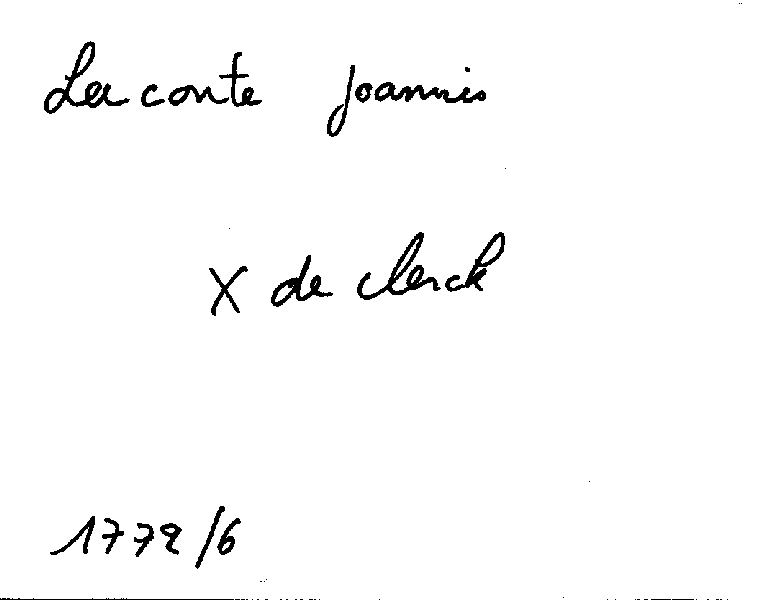 Laconte Joannis
X de clerck
1772/6